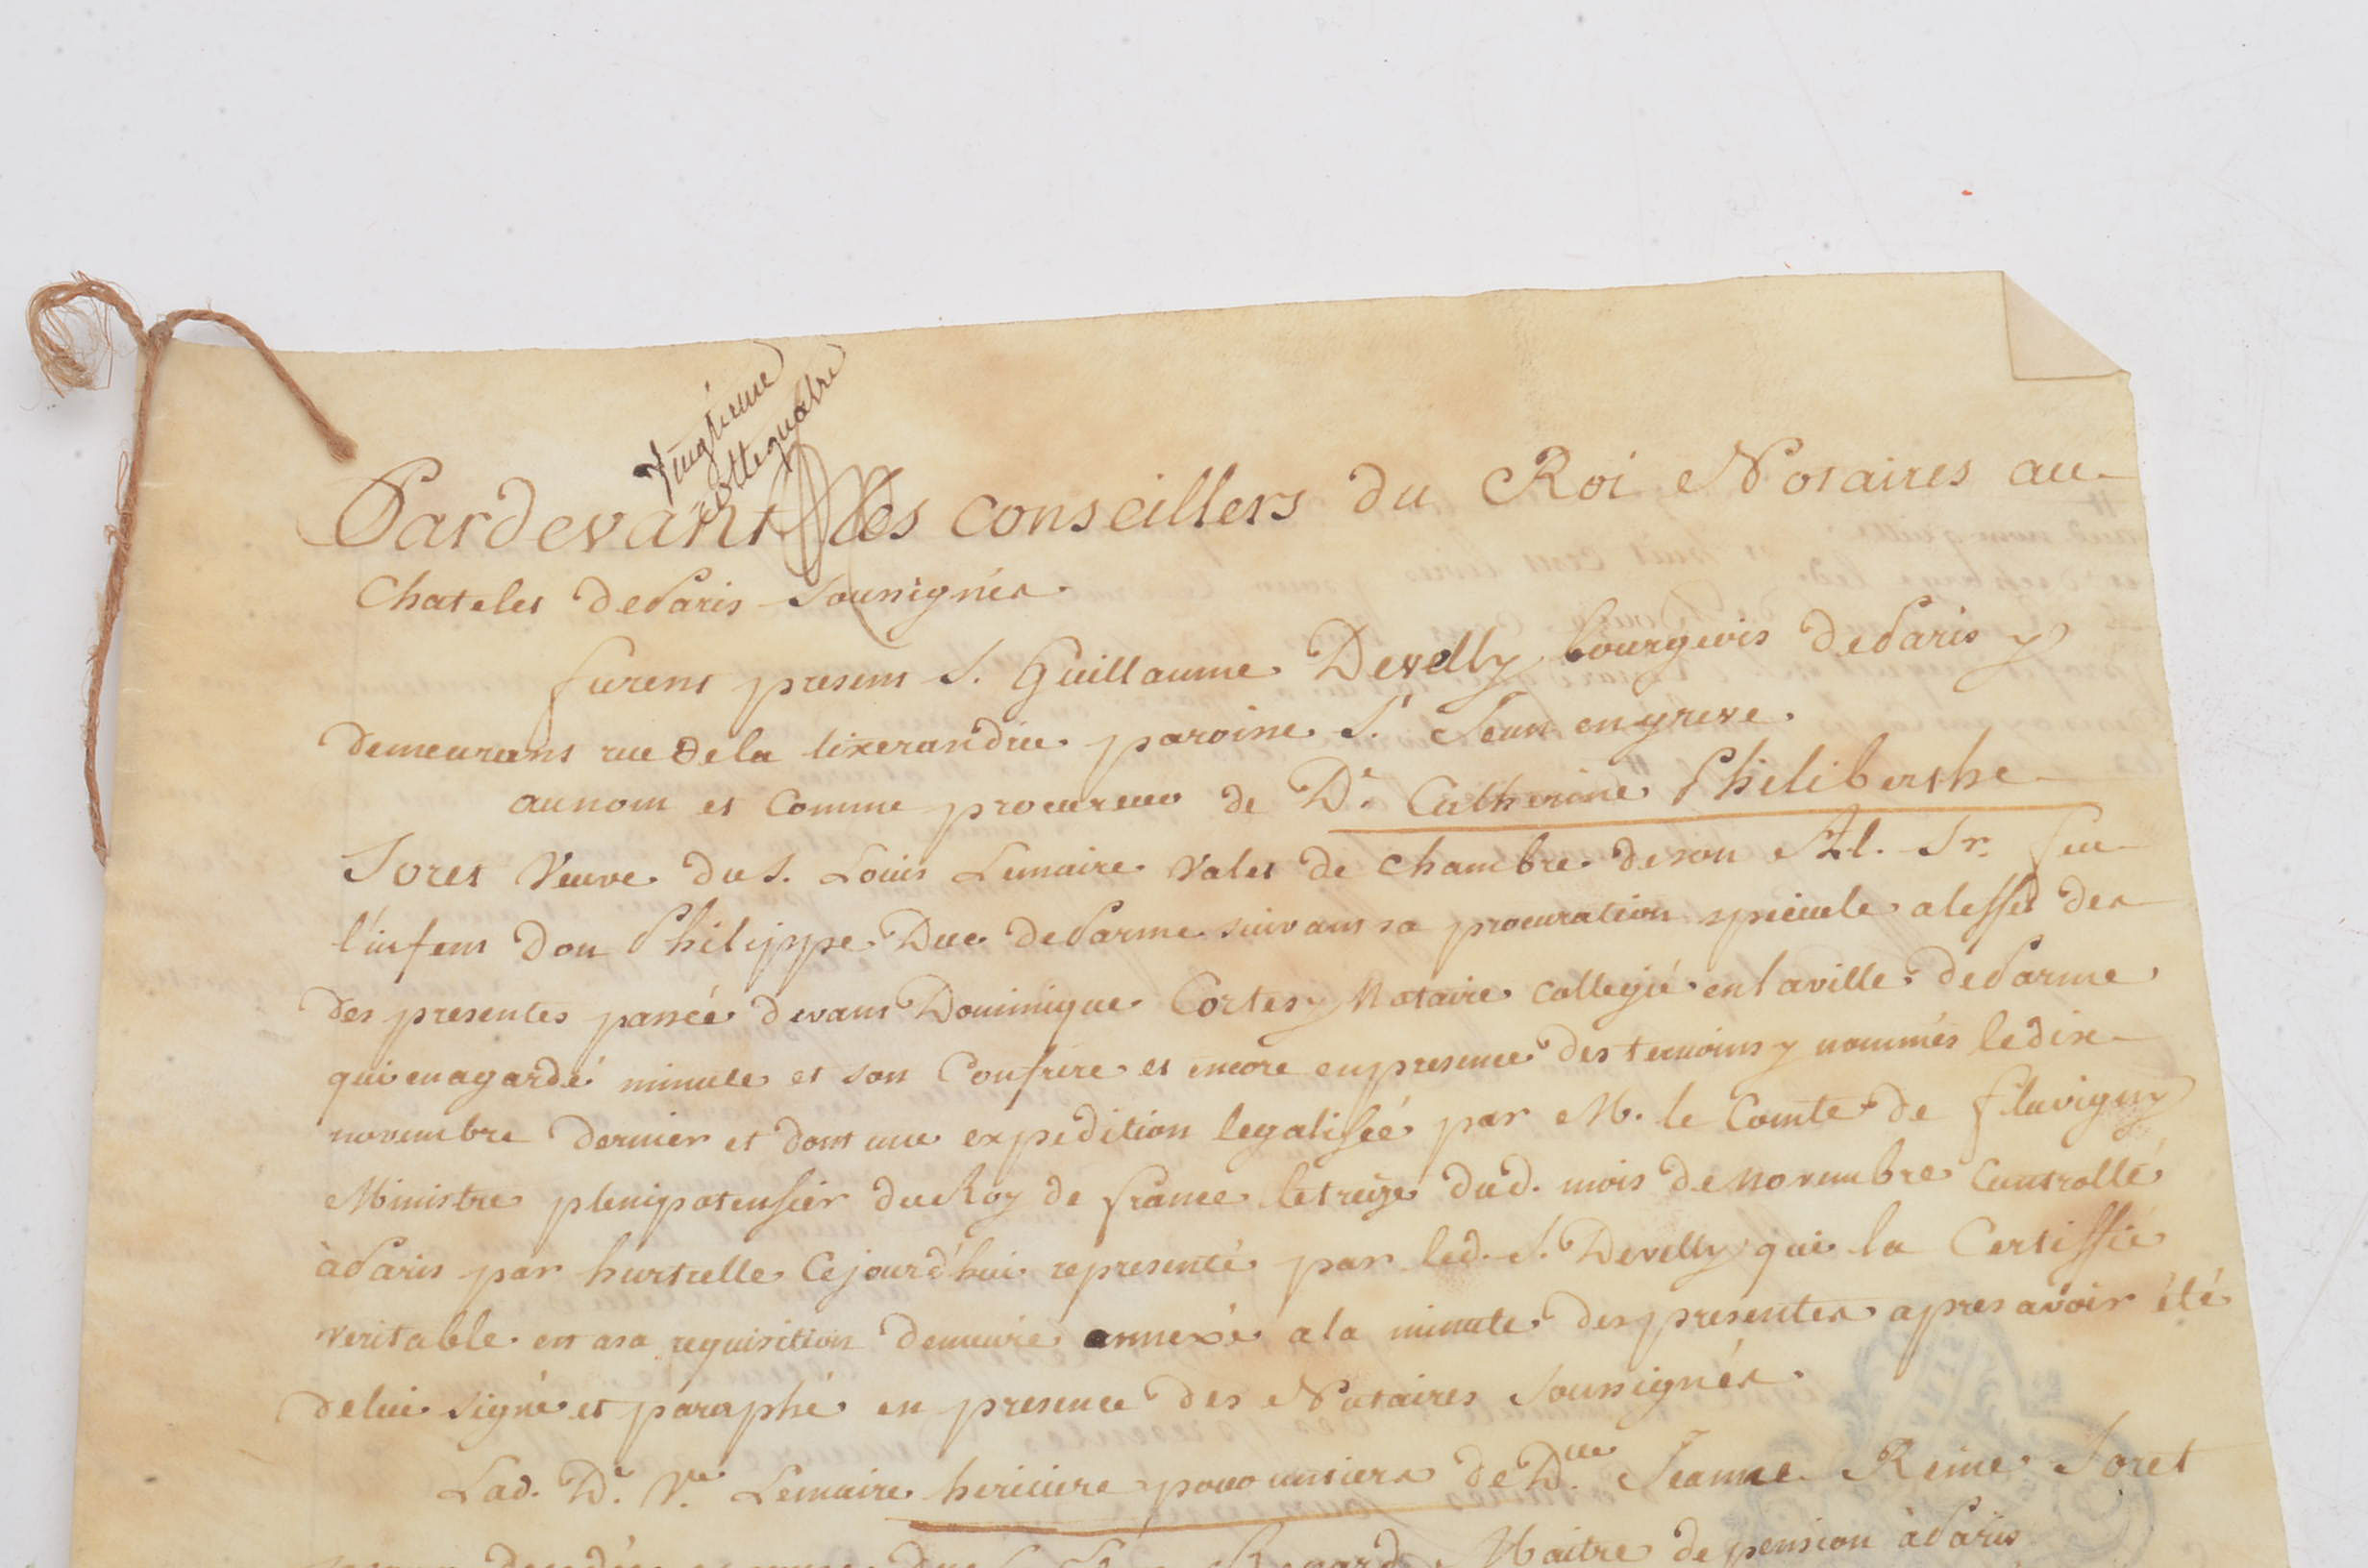 Vingtieme
cotte quatre
Pardevant les conseillers du Roi Notaires au
Chatelet de Paris Soussignés.
furent present S. Guillaume Develly bourgeois de Paris y
demeurant rue de la tixerandrie paroisse St Jean en greve.
au nom et Comme procureur de De Catherine Philiberthe
Joret Veuve du S. Louis Lemaire Valet de Chambre de son Al. Sr. feu
l'infent don Philippe Duc de Parme suivant sa procuration speciale a leffet des
des presentes passée devant Dominique Cortesy Notaire Collegié en la ville de Parme
qui en a gardé minute et son Confrere et encore en presence des temoins y nommés le dix
novembre dernier et dont une expedition legalisée par M. le Comte de flavigny
Ministre plenipotensier du Roy de france le treize dud. mois de novembre Controllé
à Paris par hurtrelle Cejourd'hui representé par led. S. Develly qui la Certiffié
veritable et a sa requisition demeuré annexé a la minute des presentes apres avoir été
de lui signé et paraphé en presence des Notaires Soussignés.
Lad. De Ve Lemaire heritiere pour un tiers de Dlle Jeanne Reine Joret
Maitre de pension à Paris